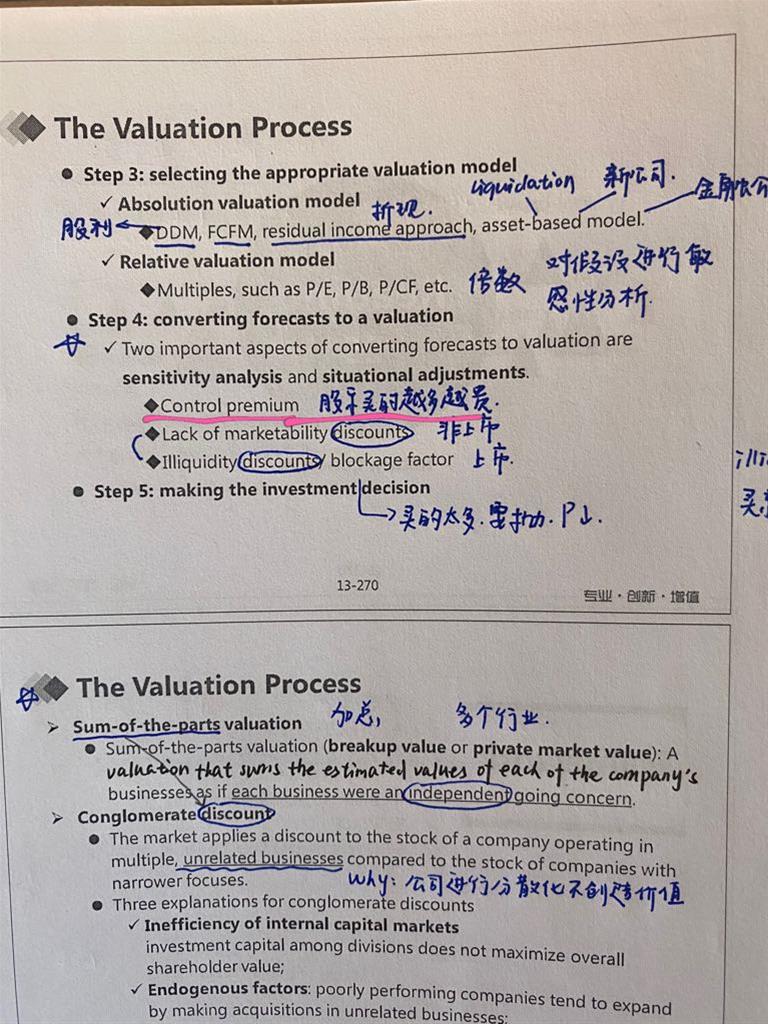 The Valuation Process
● Step 3: selecting the appropriate valuation model
liquidation 新公司. 金融
✓ Absolution valuation model 折现.
股利 ← ◆DDM, FCFM, residual income approach, asset-based model.
✓ Relative valuation model
◆Multiples, such as P/E, P/B, P/CF, etc. 倍数
对假设进行敏
感性分析.
● Step 4: converting forecasts to a valuation
✓ Two important aspects of converting forecasts to valuation are
sensitivity analysis and situational adjustments.
◆Control premium 股票买的越多越贵.
◆Lack of marketability discounts 非上市
◆Illiquidity discounts/ blockage factor 上市.
● Step 5: making the investment decision
→ 买的太多.要抛. P↓.
13-270
专业·创新·增值
The Valuation Process
➢ Sum-of-the-parts valuation 加总, 多个行业.
● Sum-of-the-parts valuation (breakup value or private market value): A
valuation that sums the estimated values of each of the company's
businesses as if each business were an independent going concern.
➢ Conglomerate discount
● The market applies a discount to the stock of a company operating in
multiple, unrelated businesses compared to the stock of companies with
narrower focuses. why: 公司进行分散化不创造价值
● Three explanations for conglomerate discounts
✓ Inefficiency of internal capital markets
investment capital among divisions does not maximize overall
shareholder value;
✓ Endogenous factors: poorly performing companies tend to expand
by making acquisitions in unrelated businesses;